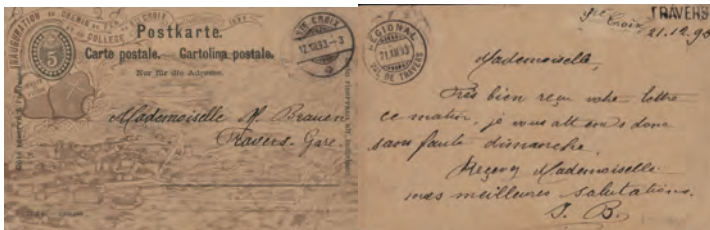 INAUGURATION DU CHEMIN DE FER
COLLEGE
STE CROIX
Postkarte.
Carte postale. — Cartolina postale.
Nur für die Adresse.
5
STE CROIX
12.XII.93.–3
Mademoiselle M. Brauen
Travers. Gare.
REGIONAL
21.XII.93
VAL DE TRAVERS
TRAVERS
Ste Croix, 21.12.93
Mademoiselle,
Très bien reçu votre lettre
ce matin, je vous attends donc
sans faute dimanche.
Reçevez Mademoiselle
mes meilleures salutations.
J. B.